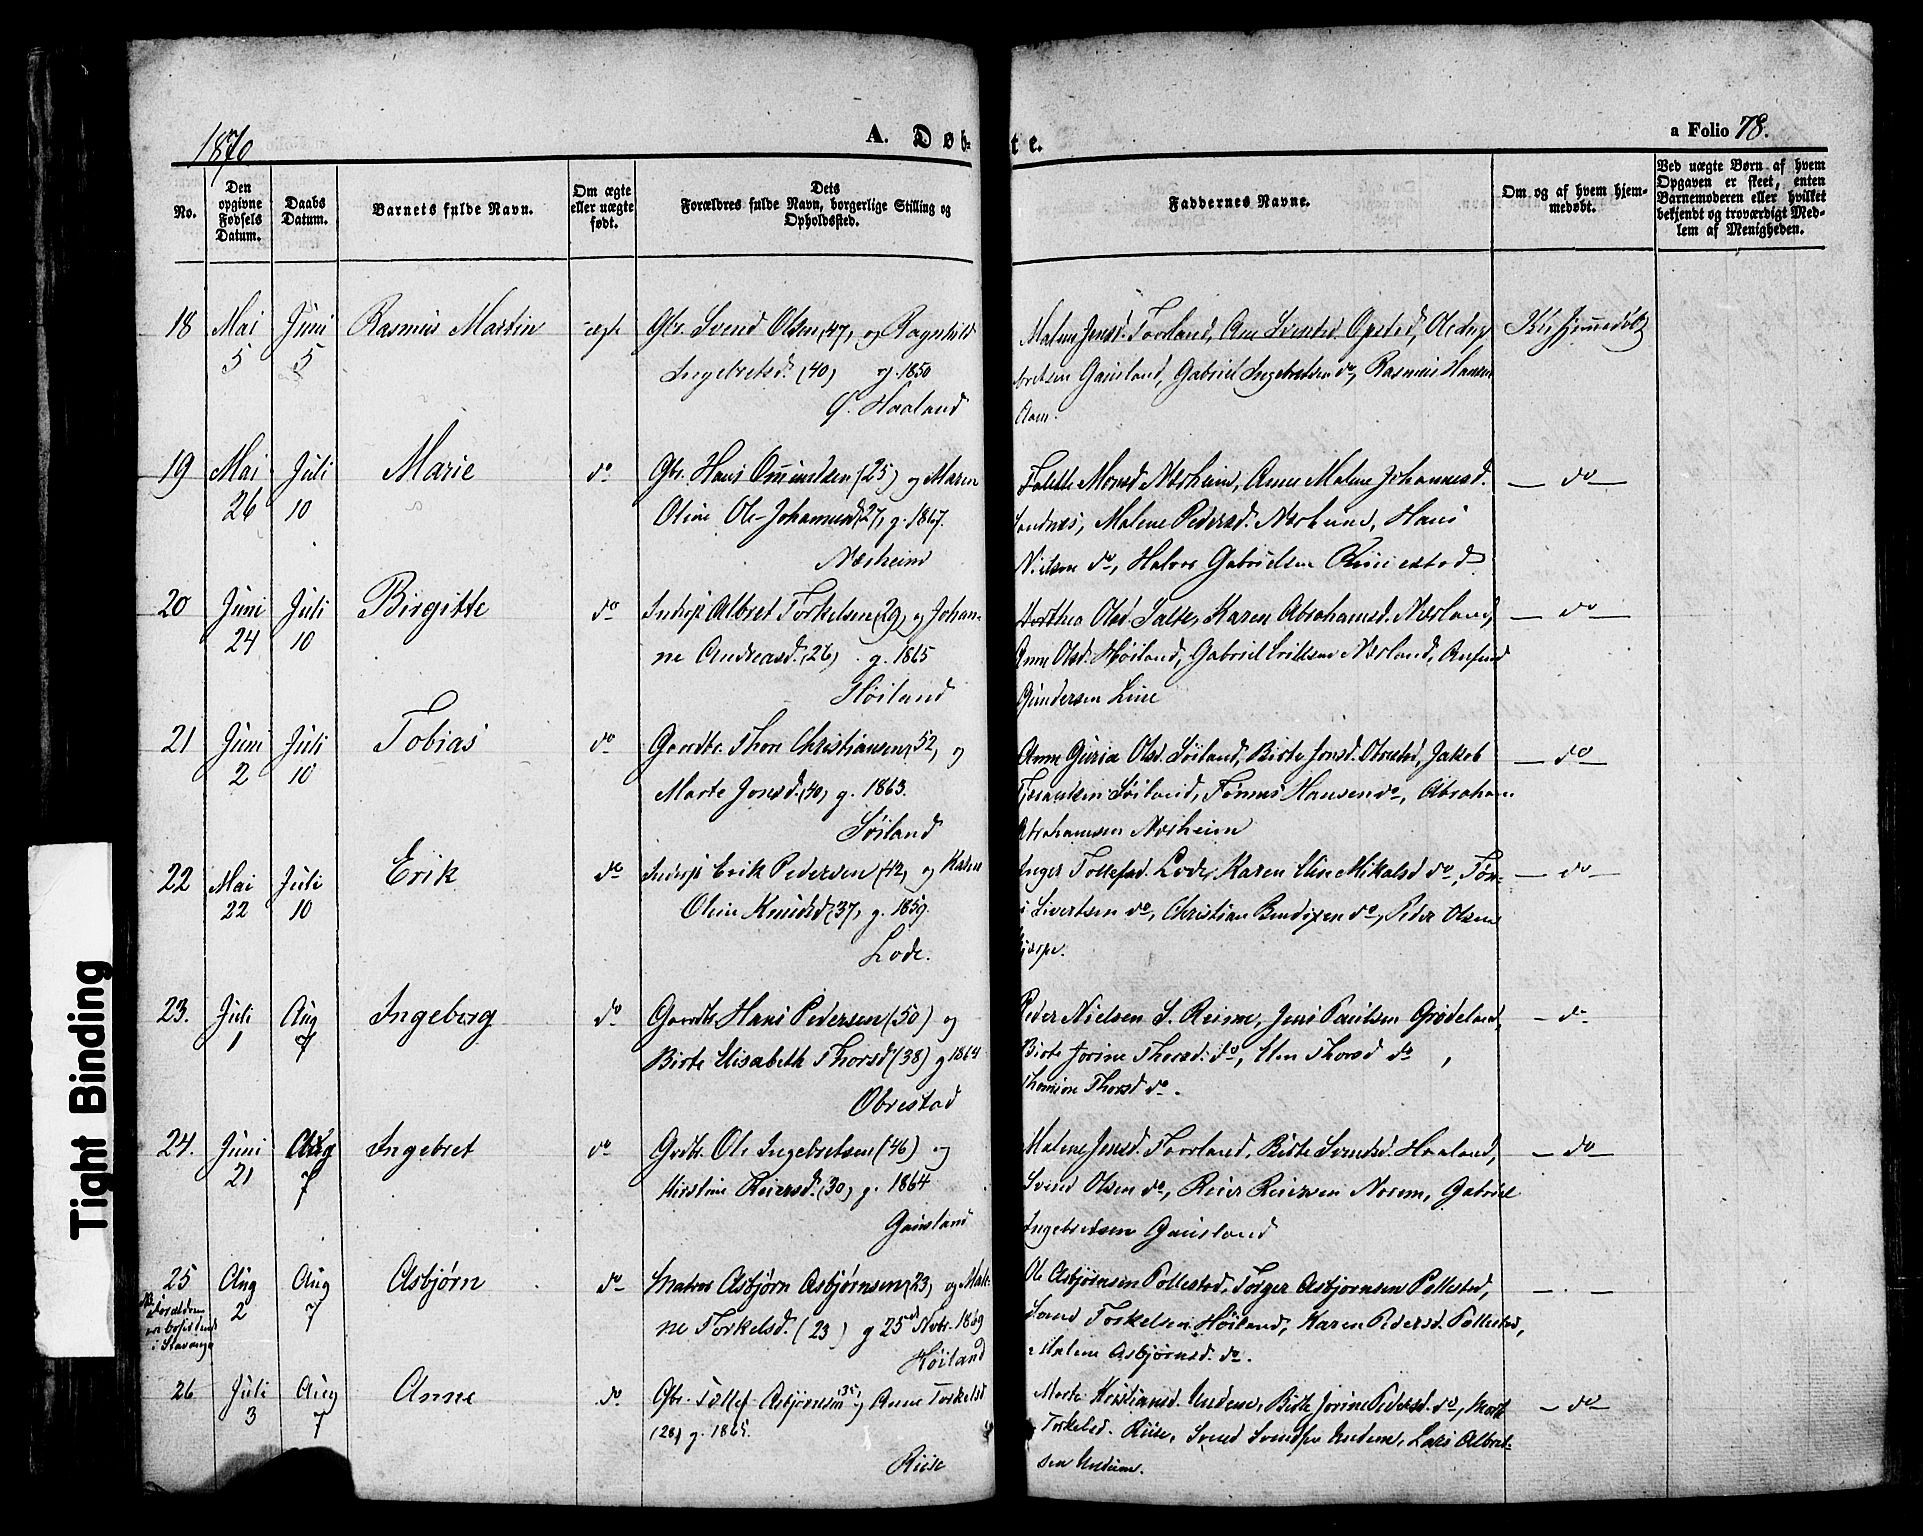 1870
A. Døb-
te.
a Folio 78.
No.
Den opgivne Fødsels Datum.
Daabs Datum.
Barnets fulde Navn.
Om ægte eller uægte født.
Dets Forældres fulde Navn, borgerlige Stilling og Opholdssted.
Faddernes Navne.
Om og af hvem hjemmedøbt.
Ved uægte Børn af hvem Opgaven er skeet, enten Barnemoderen eller hvilket bekjendt og troværdigt Medlem af Menigheden.
18 Mai 5 Juni 5 Rasmus Martin ægte Gbr. Svend Olsen (47) og Ragnhild
Ingebretsd. (40) g. 1850
Haaland
Malene Jensd. Torland, Ane Svensd. Opsted, Ole Inge-
bretsen Gausland, Gabriel Ingebretsen do, Rasmus Hansen
Aam.
Ikke hjemmedøbt
19 Mai 26 Juli 10 Marie do Gbr. Hans Omundsen (25) og Maren
Oline Ole-Johannesd. (27) g. 1867.
Nærheim
Monsd Nærheim, Anne Malene Johannesd.
Sandnes, Malene Pedersd. Nærland, Hans
Nielsen do, Halvor Gabrielsen
— do —
20 Juni 24 Juli 10 Birgitte do Inderst Albret Torkelsen (29) og Johan-
ne Andreasd. (26) g. 1865
Høiland
Dorthea Olsd. Salte, Karen Abrahamsd. Nærland,
Anne Olsd. Høiland, Gabriel Eriksen Nærland,
Gundersen Line
— do —
21 Juni 2 Juli 10 Tobias do Gaardbr. Thore Christiansen (52) og
Marte Jonsd. (40) g. 1863.
Søiland
Anne Guria Olsd. Søiland, Birte Jonsd. Obrestad, Jakob
Søiland, Tønnes Hansen do, Abraham
Abrahamsen Nærheim
— do —
22 Mai 22 Juli 10 Erik do Inderst Erik Pedersen (42) og Karen
Oline Knudsd (37) g. 1859.
Lode.
Inger Tollefsd. Lode, Karen Eline Mikalsd do, Tøn-
Sivertsen do, Christian Bendixen do, Peder Olsen
— do —
23. Juli 1 Aug 7 Ingeborg do Gaardbr. Hans Pedersen (50) og
Birte Elisabeth Thorsd (38) g 1864
Obrestad
Peder Nielsen S. Reime, Jens Paulsen Grødeland,
Birte Jorine Thorsd. do, Elen Thorsd do,
Thorsd do.
— do
24. Juni 21 Aug 7 Ingebret do Grdbr. Ole Ingebretsen (46) og
Kirstine Reiersd. (30) g. 1864
Gausland
Malene Jensd. Torland, Birte Svendsd. Haaland,
Svend Olsen do, Reier Reiersen Norem, Gabriel
Ingebretsen Gausland
— do —
25 Aug 2 Aug 7 Asbjørn do Matros Asbjørn Asbjørnsen (23) og Male-
NB. Forældrene
ere bosiddende
i Stavanger
ne Torkelsd. (23) g 25de Novbr. 1869
Høiland
Ole Asbjørnsen Pollestad, Torger Asbjørnsen Pollestad,
Svend Torkelsen Høiland, Karen Pedersd. Pollestad,
Malene Asbjørnsd. do.
26 Juli 3 Aug 7 Anne do Gbr. Tollef Asbjørnsen (35) og Anne Torkelsd
(28) g. 1865.
Riise
Marte Kristiansd. Undem, Birte Jorine Pedersd. do, Marte
Torkelsd. Riise, Svend Svendsen Undem, Lars Albret-
sen Undem.
— do —
Tight Binding